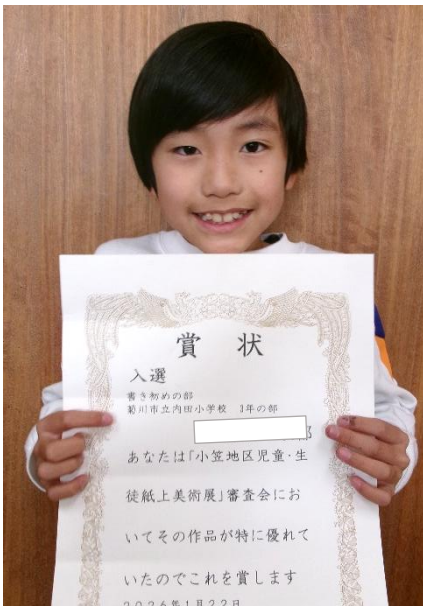 賞状
入選
書き初めの部
菊川市立内田小学校 3年の部
あなたは「小笠地区児童・生
徒紙上美術展」審査会にお
いてその作品が特に優れて
いたのでこれを賞します
2026年1月22日